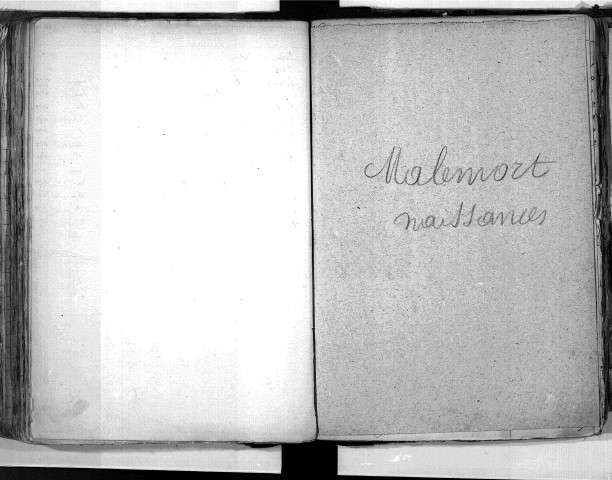 Malemort
naissances